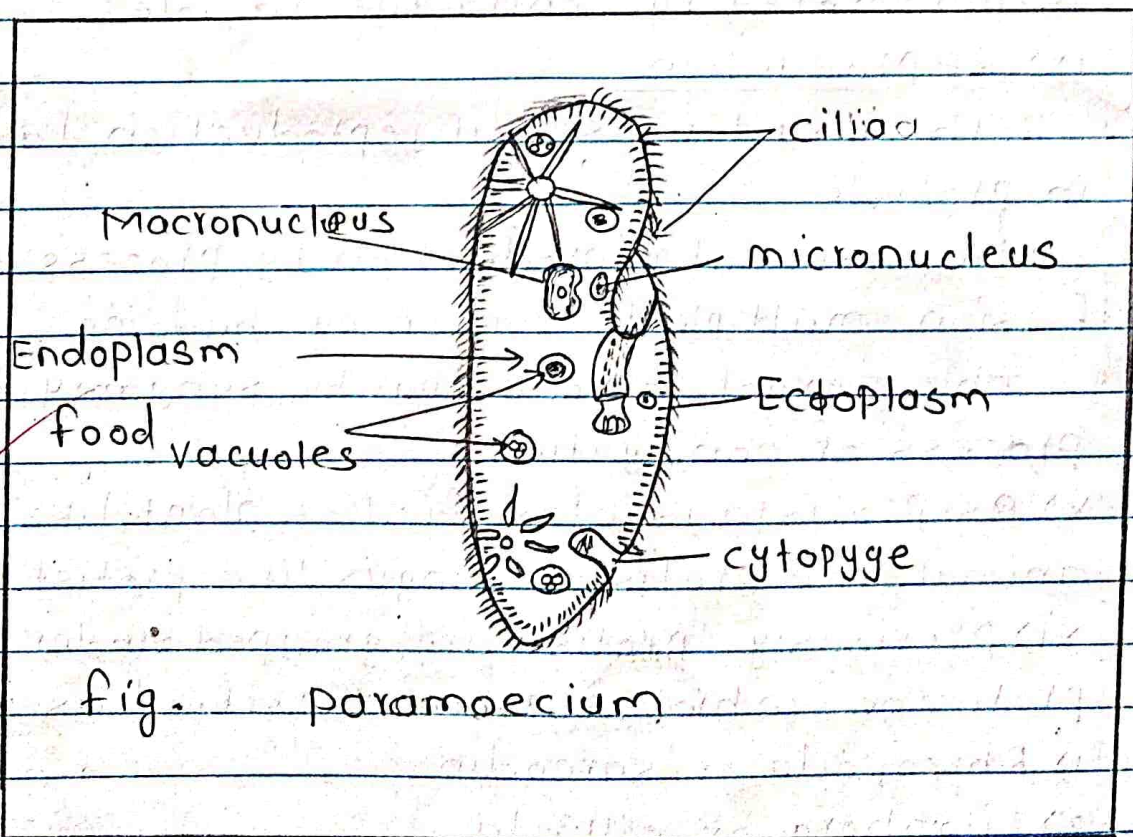 ciliaa
Macronucleus
micronucleus
Endoplasm
Ectoplasm
food
vacuoles
cytopyge
fig. paramoecium